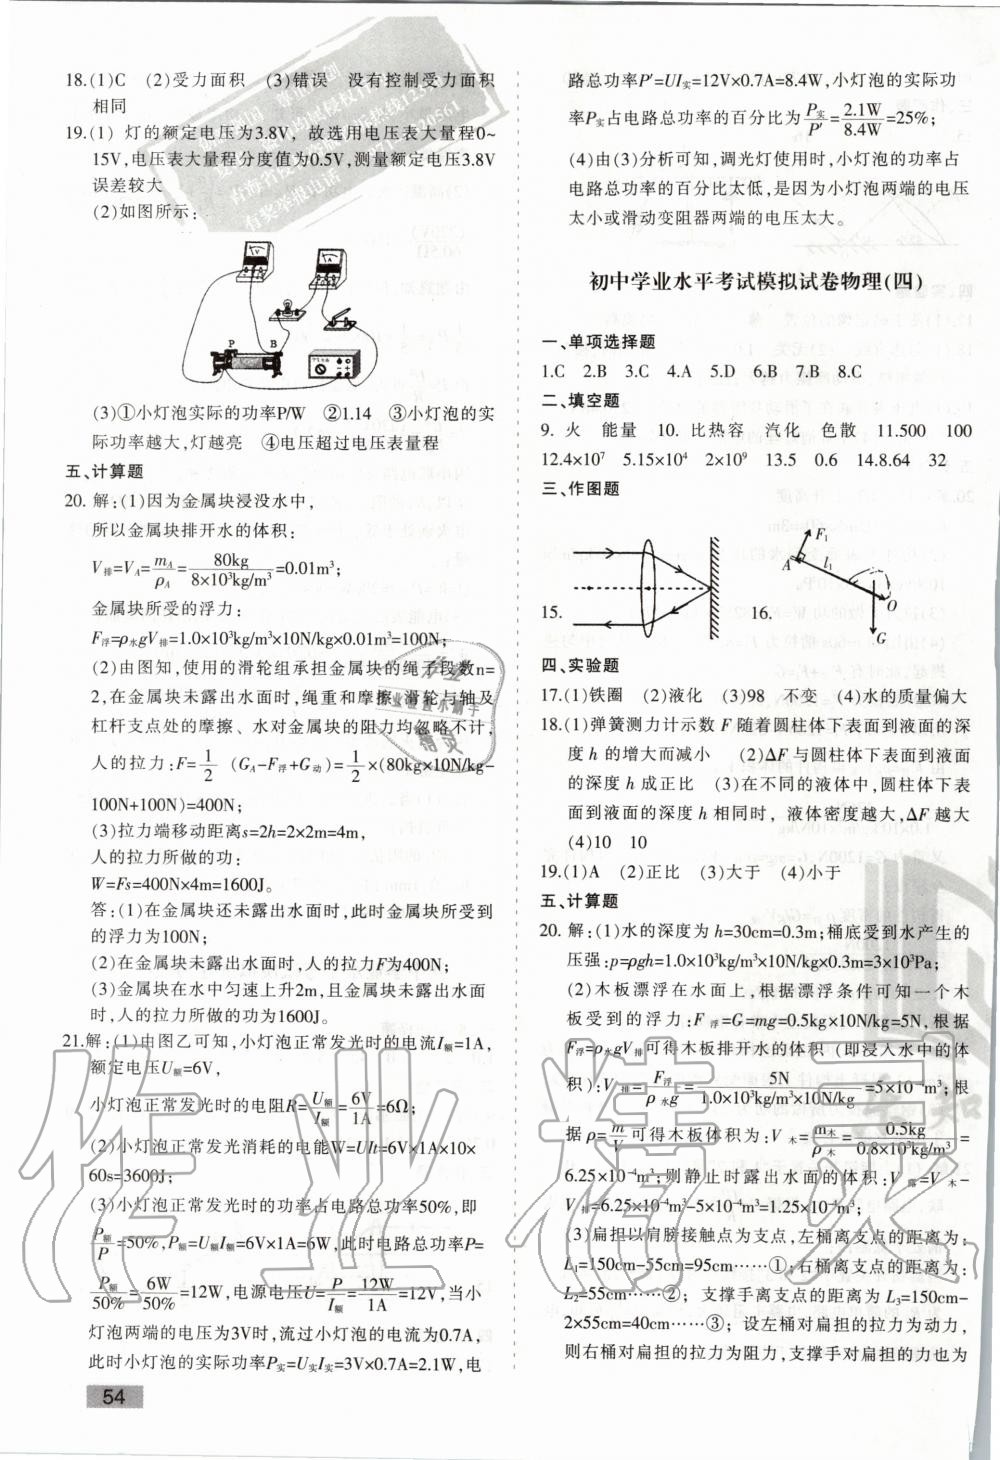 18.(1)C (2)受力面积 (3)错误 没有控制受力面积
相同
19.(1) 灯的额定电压为3.8V, 故选用电压表大量程0~
15V,电压表大量程分度值为0.5V,测量额定电压3.8V
误差较大
(2)如图所示:
V
A
P
B
(3)①小灯泡实际的功率P/W ②1.14 ③小灯泡的实
际功率越大,灯越亮 ④电压超过电压表量程
五、计算题
20. 解:(1)因为金属块浸没水中,
所以金属块排开水的体积:
V排=VA=mA/ρA=80kg/8×10³kg/m³=0.01m³;
金属块所受的浮力:
F浮=ρ水gV排=1.0×10³kg/m³×10N/kg×0.01m³=100N;
(2)由图知,使用的滑轮组承担金属块的绳子段数n=
2,在金属块未露出水面时,绳重和摩擦、滑轮与轴及
杠杆支点处的摩擦、水对金属块的阻力均忽略不计,
人的拉力:F=1/2 (GA-F浮+G动)=1/2×(80kg×10N/kg-
100N+100N)=400N;
(3)拉力端移动距离s=2h=2×2m=4m,
人的拉力所做的功:
W=Fs=400N×4m=1600J。
答:(1)在金属块还未露出水面时,此时金属块所受到
的浮力为100N;
(2)在金属块未露出水面时,人的拉力F为400N;
(3)金属块在水中匀速上升2m,且金属块未露出水面
时,人的拉力所做的功为1600J。
21.解:(1)由图乙可知,小灯泡正常发光时的电流I额=1A,
额定电压U额=6V,
小灯泡正常发光时的电阻R=U额/I额=6V/1A=6Ω;
(2)小灯泡正常发光消耗的电能W=UIt=6V×1A×10×
60s=3600J;
(3)小灯泡正常发光时的功率占电路总功率50%,即
P额/P=50%,P额=U额I额=6V×1A=6W,此时电路总功率P=
P额/50%=6W/50%=12W,电源电压U=P/I额=12W/1A=12V,当小
灯泡两端的电压为3V时,流过小灯泡的电流为0.7A,
此时小灯泡的实际功率P实=U实I实=3V×0.7A=2.1W,电
54
路总功率P′=UI实=12V×0.7A=8.4W,小灯泡的实际功
率P实占电路总功率的百分比为P实/P′=2.1W/8.4W=25%;
(4)由(3)分析可知,调光灯使用时,小灯泡的功率占
电路总功率的百分比太低,是因为小灯泡两端的电压
太小或滑动变阻器两端的电压太大。
初中学业水平考试模拟试卷物理(四)
一、单项选择题
1.C 2.B 3.C 4.A 5.D 6.B 7.B 8.C
二、填空题
9. 火 能量 10. 比热容 汽化 色散 11.500 100
12.4×10⁷ 5.15×10⁴ 2×10⁹ 13.5 0.6 14.8.64 32
三、作图题
15.
16.
F₁
A
l₁
O
G
四、实验题
17.(1)铁圈 (2)液化 (3)98 不变 (4)水的质量偏大
18.(1)弹簧测力计示数 F 随着圆柱体下表面到液面的深
度 h 的增大而减小 (2)ΔF 与圆柱体下表面到液面
的深度 h 成正比 (3)在不同的液体中,圆柱体下表
面到液面的深度 h 相同时, 液体密度越大,ΔF 越大
(4)10 10
19.(1)A (2)正比 (3)大于 (4)小于
五、计算题
20. 解:(1)水的深度为 h=30cm=0.3m;桶底受到水产生的
压强:p=ρgh=1.0×10³kg/m³×10N/kg×0.3m=3×10³Pa;
(2)木板漂浮在水面上,根据漂浮条件可知一个木
板受到的浮力:F浮=G=mg=0.5kg×10N/kg=5N,根据
F浮=ρ水gV排可得木板排开水的体积 (即浸入水中的体
积):V排=F浮/ρ水g=5N/1.0×10³kg/m³×10N/kg=5×10⁻⁴m³;根
据 ρ=m/V可得木板体积为:V木=m木/ρ木=0.5kg/0.8×10³kg/m³=
6.25×10⁻⁴m³;则静止时露出水面的体积:V露=V木-
V排=6.25×10⁻⁴m³-5×10⁻⁴m³=1.25×10⁻⁴m³;
(3)扁担以肩膀接触点为支点,左桶离支点的距离为:
L₁=150cm-55cm=95cm……①;右桶离支点的距离为:
L₂=55cm……②; 支撑手离支点的距离为 L₃=150cm-
2×55cm=40cm……③; 设左桶对扁担的拉力为动力,
则右桶对扁担的拉力为阻力,支撑手对扁担的力也为